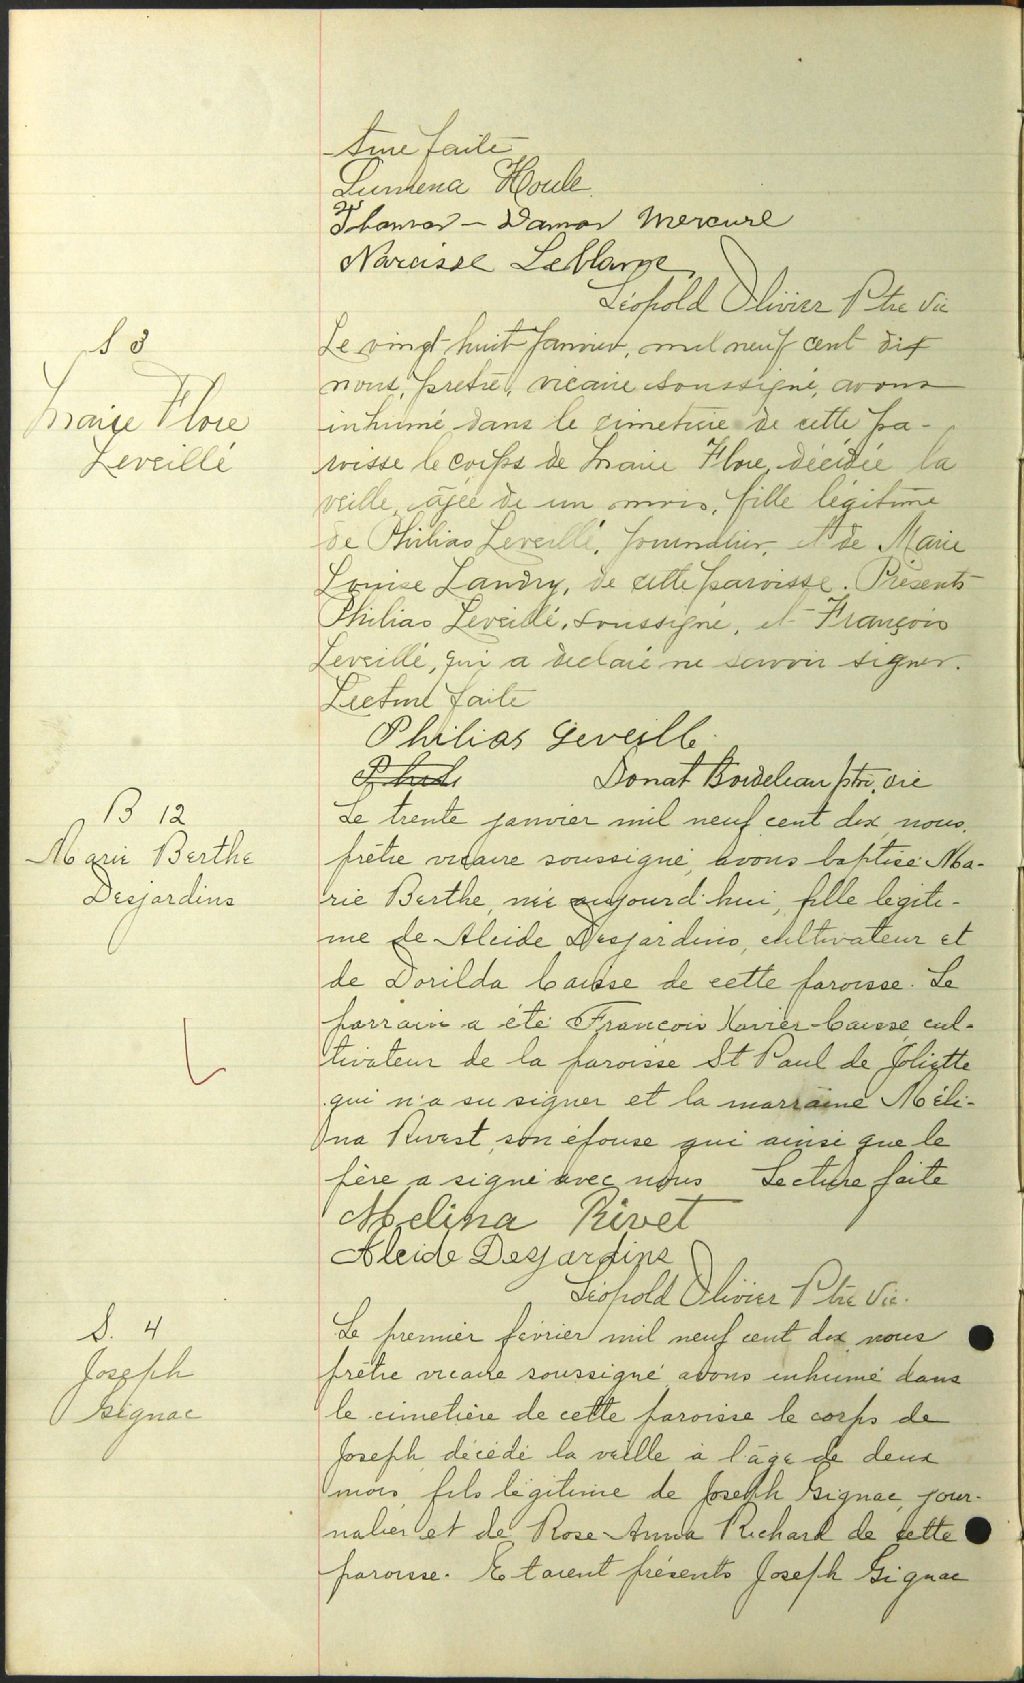 -ture faite
Lumena Houle
Thomas - Damas Mercure
Narcisse
Léopold Olivier Ptre Vic
S 3
Marie Flore
Leveillé
Le vingt huit Janvier, mil neuf cent dix
nous, pretre, vicaire soussigné, avons
inhumé dans le cimetière de cette pa-
roisse le corps de Marie Flore, décédée la
veille, âgée de un mois, fille légitime
de Philias Leveillé, journalier, et de Marie
Louise Landry, de cette paroisse. Présents
Philias Leveillé, soussigné, et François
Leveillé, qui a declaré ne savoir signer.
Lecture faite
Philias Leveille
Donat Bordeleau ptre, vic
B 12
Marie Berthe
Desjardins
Le trente janvier mil neuf cent dix, nous,
prêtre vicaire soussigné, avons baptisé Ma-
rie Berthe, née aujourd'hui, fille legiti-
me de Alcide Desjardins, cultivateur et
de Dorilda Caisse de cette paroisse. Le
parrain a été François Xavier Caisse cul-
tivateur de la paroisse St Paul de Joliette
qui n'a su signer et la marraine Méli-
na Rivest, son épouse qui ainsi que le
père a signé avec nous Lecture faite
Melina Rivet
Alcide Desjardins
Léopold Olivier Ptre Vic.
S. 4
Joseph
Gignac
Le premier février mil neuf cent dix, nous
prêtre vicaire soussigné avons inhumé dans
le cimetière de cette paroisse le corps de
Joseph, décédé la veille à l'âge de deux
mois, fils légitime de Joseph Gignac, jour-
nalier et de Rose-Anna Richard de cette
paroisse. Etaient présents Joseph Gignac